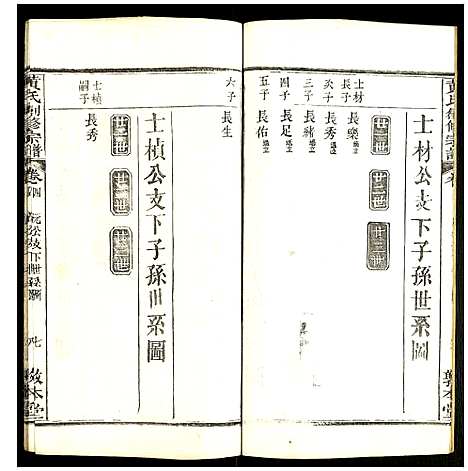 黃氏續修宗譜
敦本堂
士材公支下子孫世系圖
廿一世
廿二世
廿三世
士材
長子 長榮
次子 長秀
三子 長緒
四子 長足
五子 長佑
六子 長生
士楨公支下子孫世系圖
廿一世
廿二世
廿三世
士楨
嗣子 長秀
黃氏續修宗譜
卷四
公支下世系圖
敦本堂